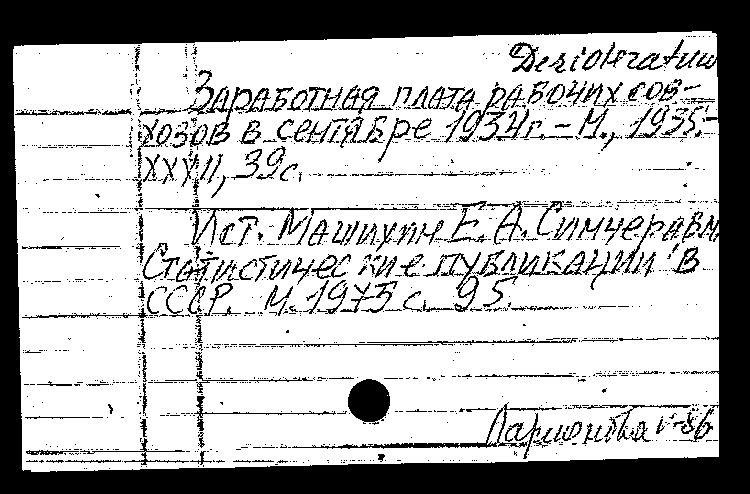 Desideratum
Заработная плата рабочих сов-
хозов в сентябре 1934г. - М., 1935.-
XXVII, 39с.
Ист. Машихин Е.А. Симчера В.М.
Статистические публикации в
СССР. М. 1975 с. 95.
V-86